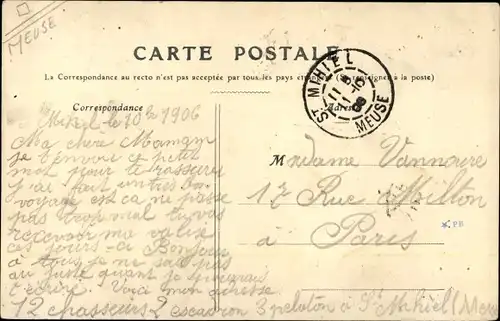 MEUSE
CARTE POSTALE
(La Correspondance au recto n'est pas acceptée par tous les pays étrangers (Se renseigner à la poste)
Correspondance
Adresse
ST MIHIEL
MEUSE
Mihiel le 10 1906
Ma chère Maman
je t'envoie ce petit
mot pour te rassurer
j'ai fait un très bon
voyage et ça ne passe
pas trop mal tu vas
recevoir ma valise
ces jours-ci Bonjour
à tous je ne sais pas
au juste quant je pourrais
t'écrire. Voici mon adresse
12 chasseurs 2 escadron 3 peloton à St Mihiel (Meuse
M
Madame
17 Rue Milton
à Paris
PB